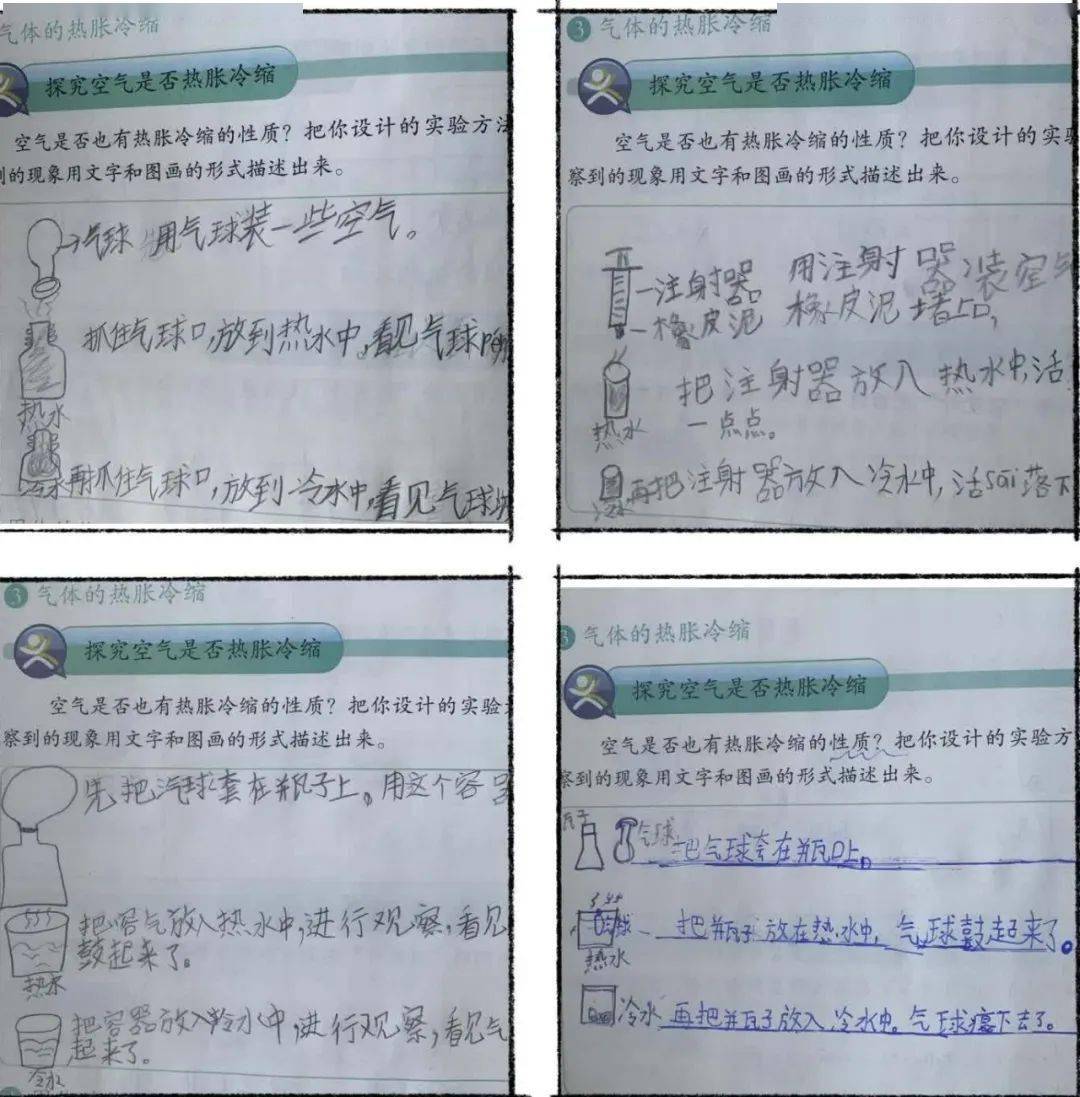 气体的热胀冷缩
探究空气是否热胀冷缩
空气是否也有热胀冷缩的性质？把你设计的实验方法
的现象用文字和图画的形式描述出来。
气球 用气球装一些空气。
抓住气球口,放到热水中,看见气球
热水
再抓住气球口,放到冷水中,看见气球
冷水
3 气体的热胀冷缩
探究空气是否热胀冷缩
空气是否也有热胀冷缩的性质？把你设计的实
察到的现象用文字和图画的形式描述出来。
注射器 用注射器装空气
橡皮泥 橡皮泥堵上口,
把注射器放入热水中,活
热水 一点点。
再把注射器放入冷水中,活sāi落下
3 气体的热胀冷缩
探究空气是否热胀冷缩
空气是否也有热胀冷缩的性质？把你设计的实验
察到的现象用文字和图画的形式描述出来。
先把汽球套在瓶子上。用这个容器
把容气放入热水中,进行观察,看见
鼓起来了。
热水
把容器放入冷水中,进行观察,看见气
起来了。
冷水
3 气体的热胀冷缩
探究空气是否热胀冷缩
空气是否也有热胀冷缩的性质？把你设计的实验方
察到的现象用文字和图画的形式描述出来。
气球 把气球套在瓶口上。
把瓶子放在热水中，气球鼓起来了。
热水
冷水 再把瓶子放入冷水中。气球瘪下去了。